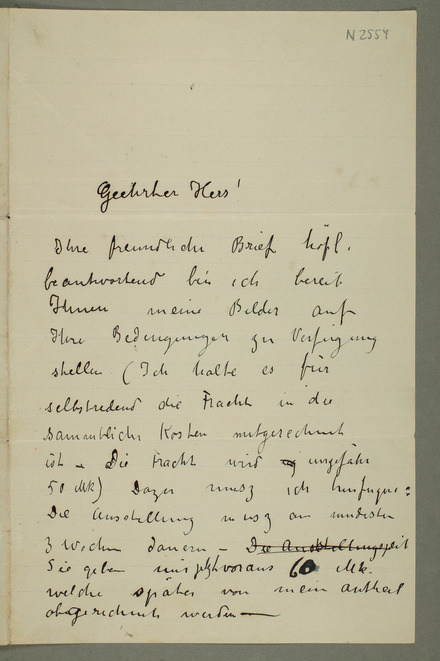 N 2554
Geehrter Herr!
Ihre freundliche Brief höfl.
beantwortend bin ich bereit
Ihnen meine Bilder auf
Ihre Bedingungen zu Verfügung
stellen (Ich halte es für
selbstredend die Fracht in die
sammtliche Kosten mitgerechnet
ist – Die Fracht wird ungefähr
50 Mk) Dazu musz ich hinfugen:
Die Ausstellung musz am mindesten
3 Wochen dauern – Die Ausstellungszeit
Sie geben mir jetzt voraus 60 Mk.
welche später von mein antheil
abgerechnet werden —